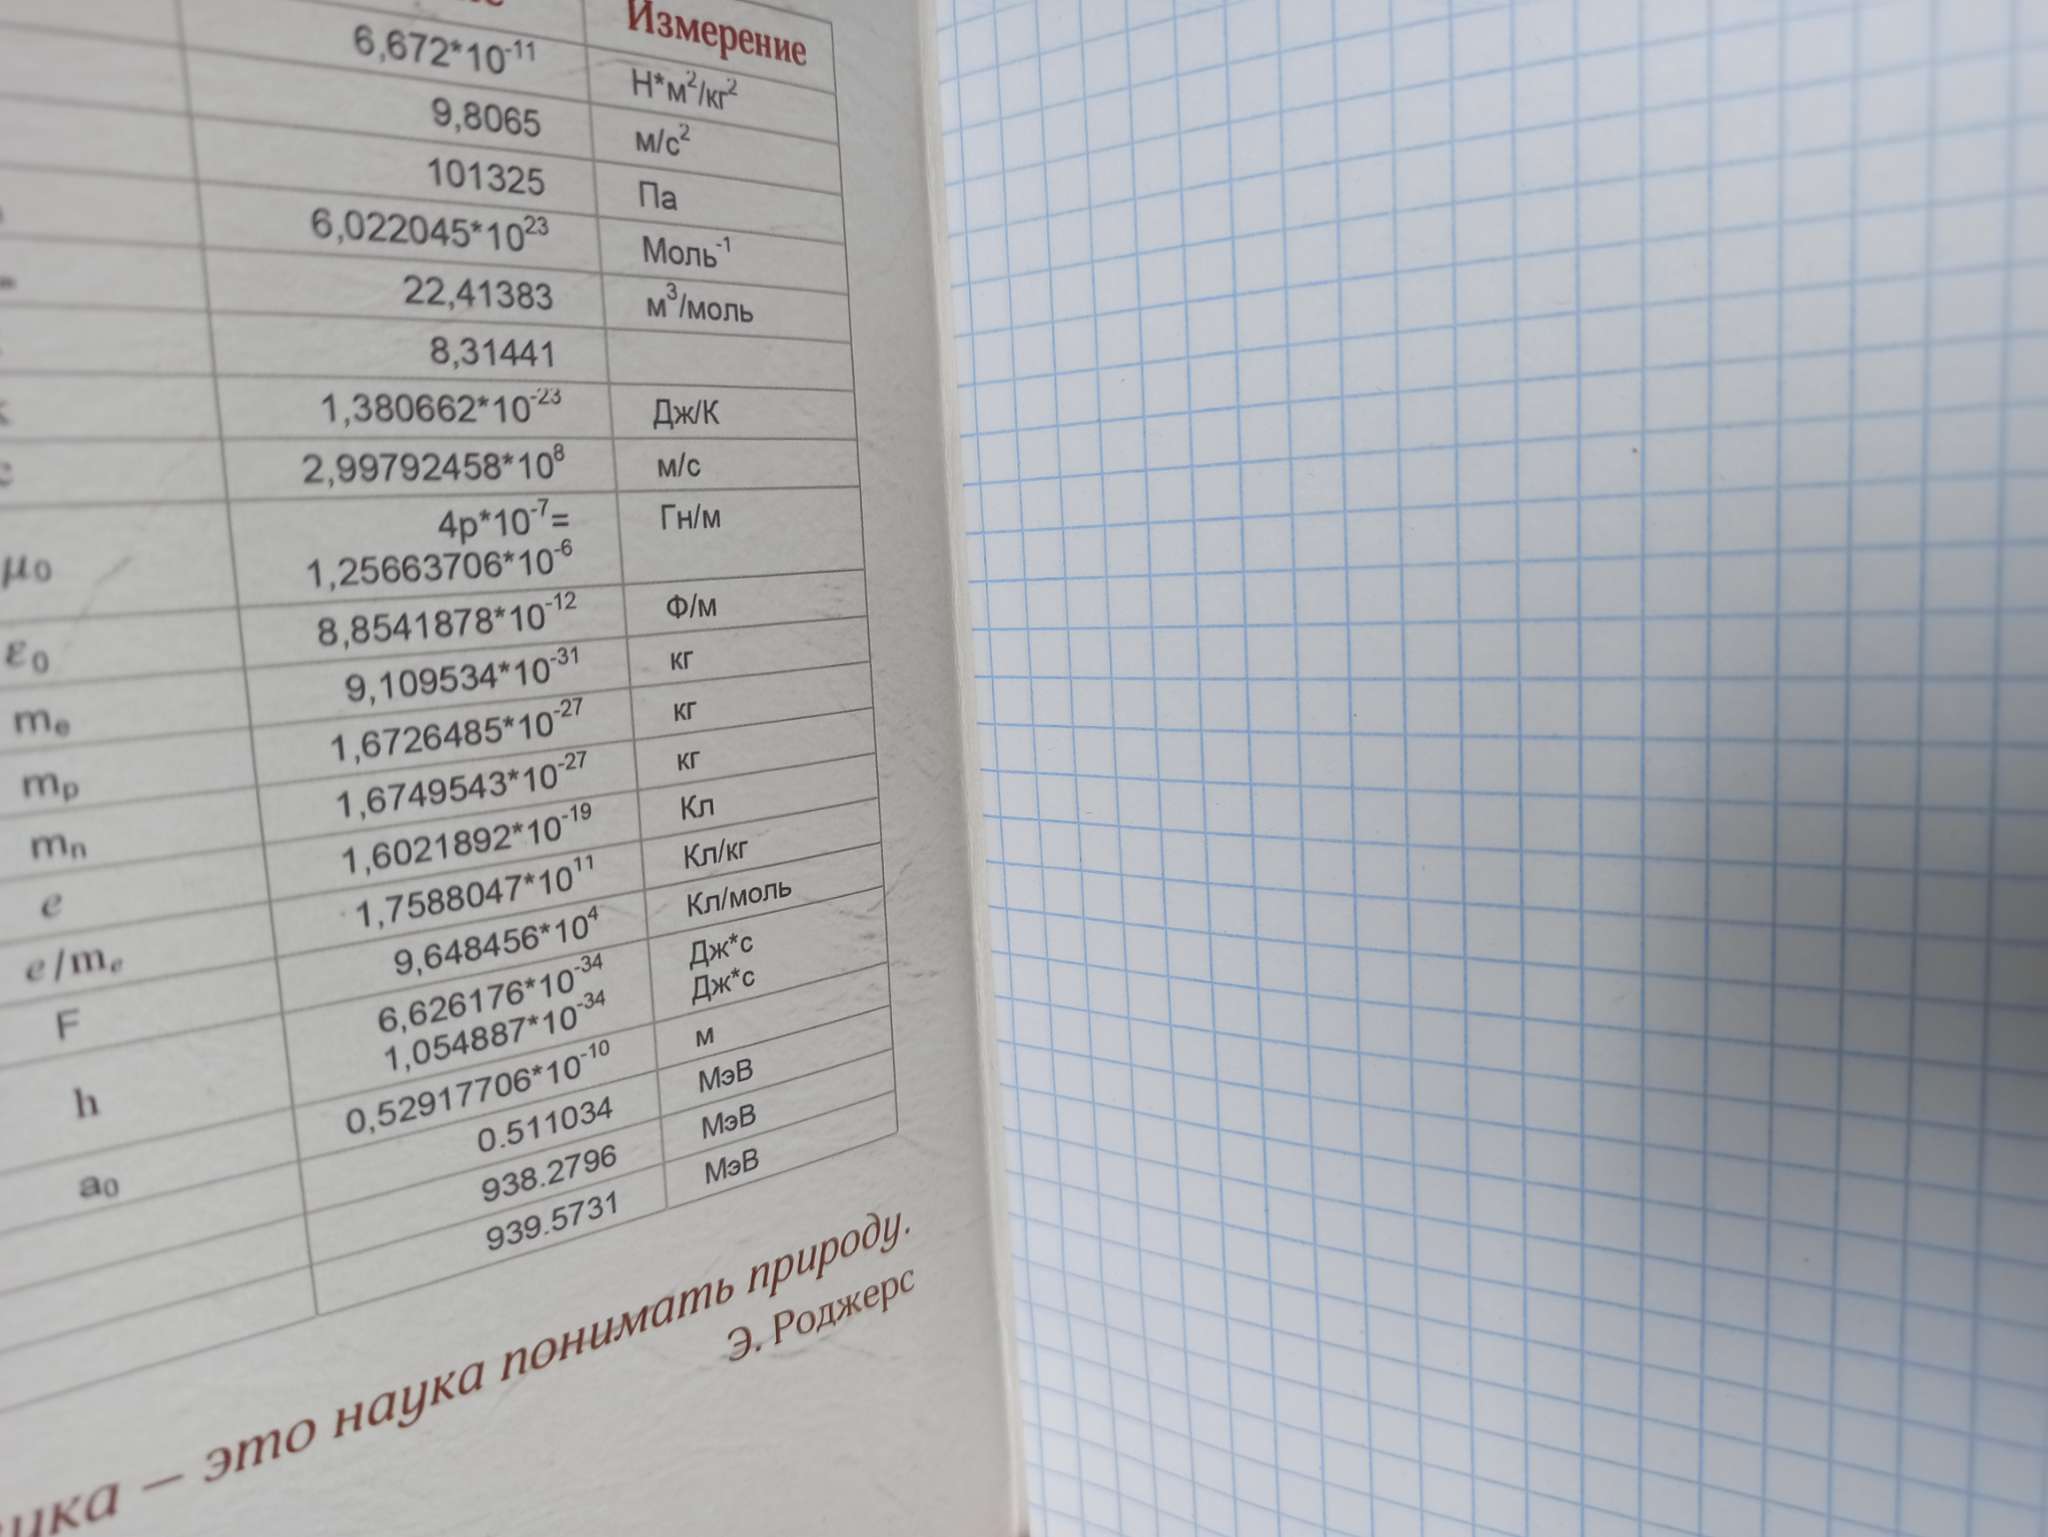 Измерение
6,672*10⁻¹¹ Н*м²/кг²
9,8065 м/с²
101325 Па
6,022045*10²³ Моль⁻¹
22,41383 м³/моль
8,31441
1,380662*10⁻²³ Дж/К
2,99792458*10⁸ м/с
4p*10⁻⁷= Гн/м
μ₀ 1,25663706*10⁻⁶
ε₀ 8,8541878*10⁻¹² Ф/м
mₑ 9,109534*10⁻³¹ кг
mₚ 1,6726485*10⁻²⁷ кг
mₙ 1,6749543*10⁻²⁷ кг
e 1,6021892*10⁻¹⁹ Кл
e/mₑ 1,7588047*10¹¹ Кл/кг
F 9,648456*10⁴ Кл/моль
h 6,626176*10⁻³⁴ Дж*с
1,054887*10⁻³⁴ Дж*с
a₀ 0,52917706*10⁻¹⁰ м
0.511034 МэВ
938.2796 МэВ
939.5731 МэВ
– это наука понимать природу.
Э. Роджерс